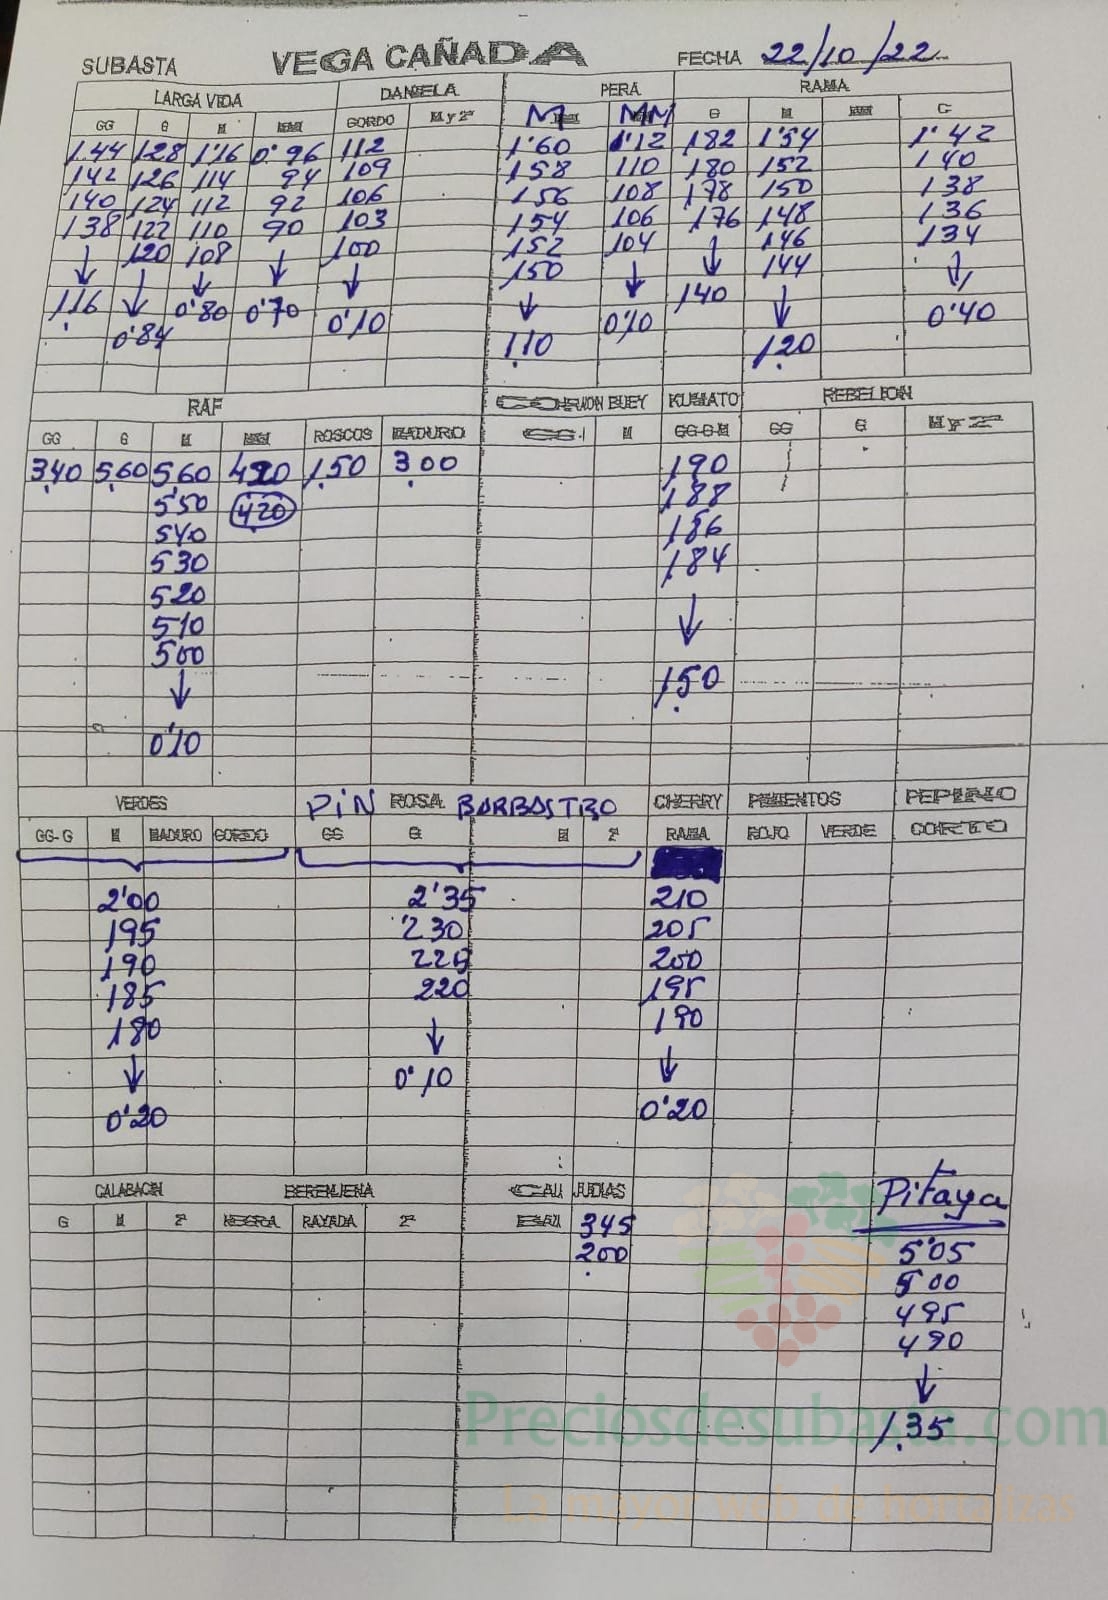 SUBASTA VEGA CAÑADA FECHA 22/10/22
LARGA VIDA DANIELA PERA RAMA
GG G M MM GORDO M y 2ª M MM G M MM C
1.44 128 1'16 0'96 112 1'60 1'12 182 1'54 1'42
142 126 114 94 109 158 110 180 152 140
140 124 112 92 106 156 108 178 150 138
138 122 110 90 103 154 106 176 148 136
↓ 120 108 ↓ 100 152 104 ↓ 146 134
↓ ↓ ↓ 150 ↓ 144 ↓
116 ↓ 0'80 0'70 ↓ 140 ↓ 0'40
0'84 0'10 1.10 0'10 1.20
RAF CORAZON BUEY KUMATO REBELION
GG G M MM ROSCOS MADURO GG M GG-G-M GG G M y 2ª
3.40 5.60 5.60 490 1.50 3.00 190
5'50 420 188
540 186
530 184
520 ↓
510
500 1.50
↓
0'10
VERDES PIN ROSA BARBASTRO CHERRY PIMIENTOS PEPINO
GG-G M MADURO GORDO GG G M 2ª RAMA ROJO VERDE CORTO
2'00 2'35 210
195 230 205
190 225 200
185 220 195
180 ↓ 190
↓ 0'10 ↓
0'20 0'20
CALABACIN BERENJENA JUDIAS Pitaya
G M 2ª NEGRA RAYADA 2ª 345
200 5'05
500
495
490
↓
1.35
Preciosdesubasta.com
La mayor web de hortalizas